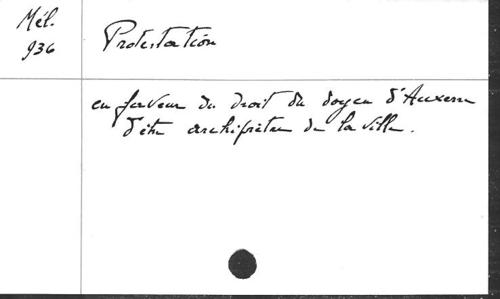 Mél.
936
Protestation
en faveur du droit du doyen d'Auxerre
d'être archiprêtre de la ville.